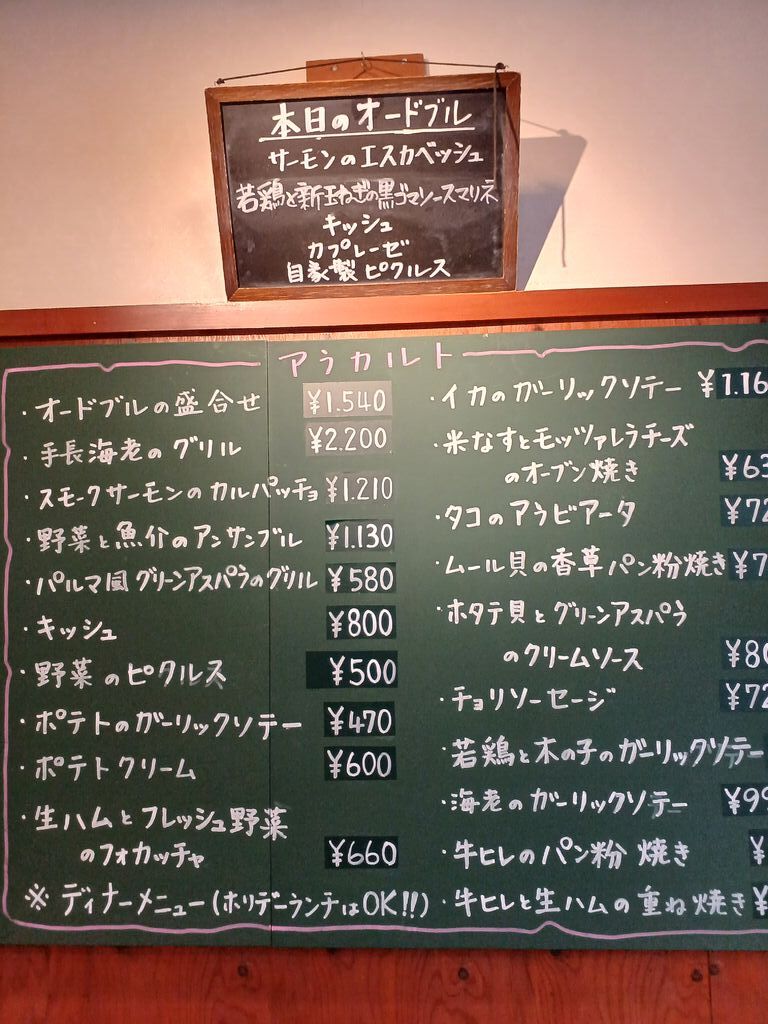 本日のオードブル
サーモンのエスカベッシュ
若鶏と新玉ねぎの黒ゴマソースマリネ
キッシュ
カプレーゼ
自家製ピクルス
アラカルト
・オードブルの盛合せ ¥1.540
・手長海老のグリル ¥2.200
・スモークサーモンのカルパッチョ ¥1.210
・野菜と魚介のアンサンブル ¥1.130
・パルマ風グリーンアスパラのグリル ¥580
・キッシュ ¥800
・野菜のピクルス ¥500
・ポテトのガーリックソテー ¥470
・ポテトクリーム ¥600
・生ハムとフレッシュ野菜
のフォカッチャ ¥660
※ ディナーメニュー(ホリデーランチはOK!!)
・イカのガーリックソテー ¥1.16
・米なすとモッツァレラチーズ
のオーブン焼き ¥63
・タコのアラビアータ ¥72
・ムール貝の香草パン粉焼き ¥7
・ホタテ貝とグリーンアスパラ
のクリームソース ¥80
・チョリソーセージ ¥72
・若鶏と木の子のガーリックソテー
・海老のガーリックソテー ¥99
・牛ヒレのパン粉焼き ¥
・牛ヒレと生ハムの重ね焼き ¥